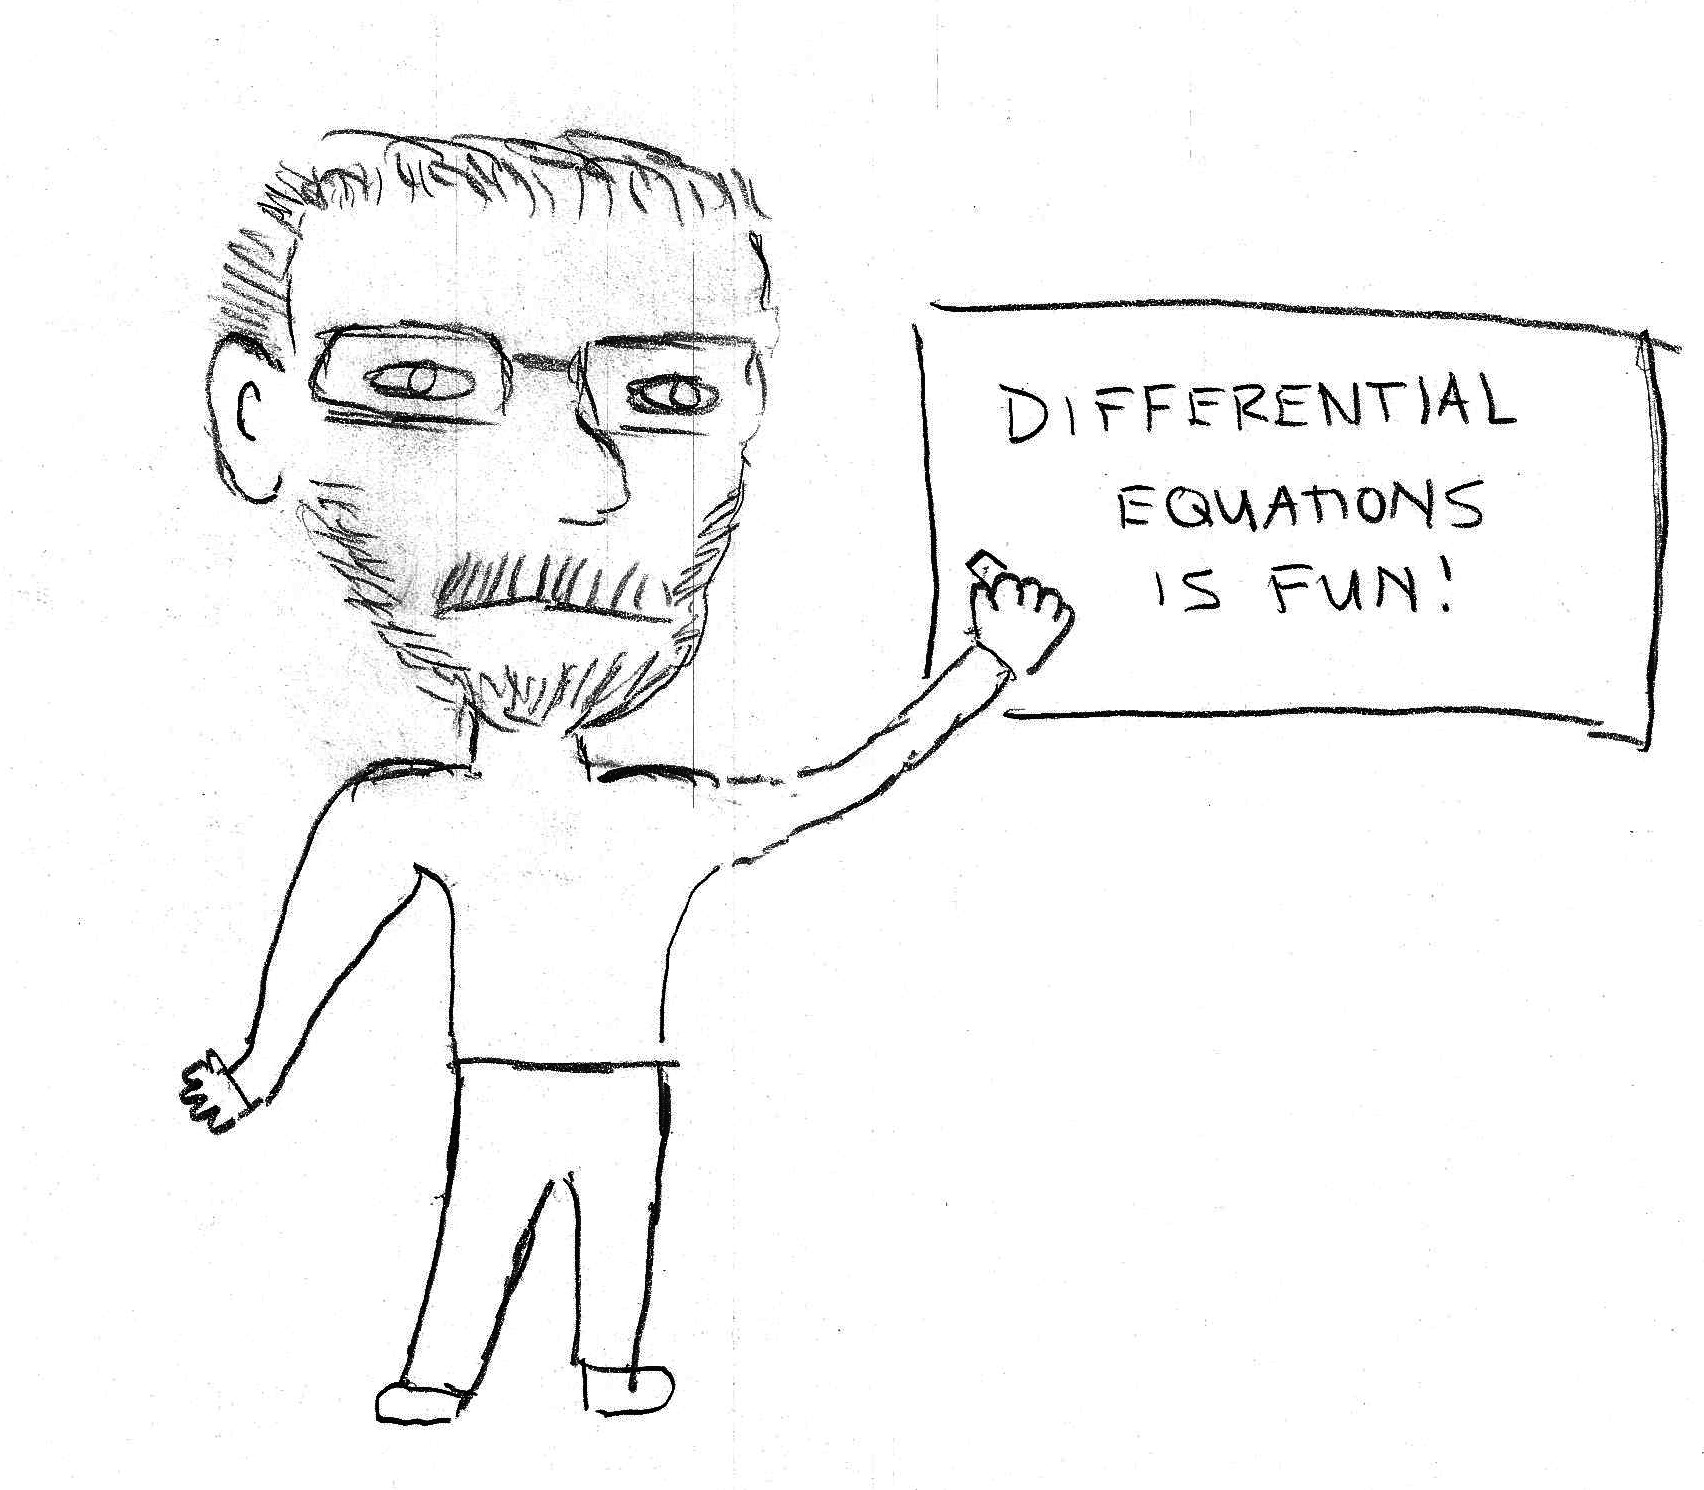 DIFFERENTIAL
EQUATIONS
IS FUN!